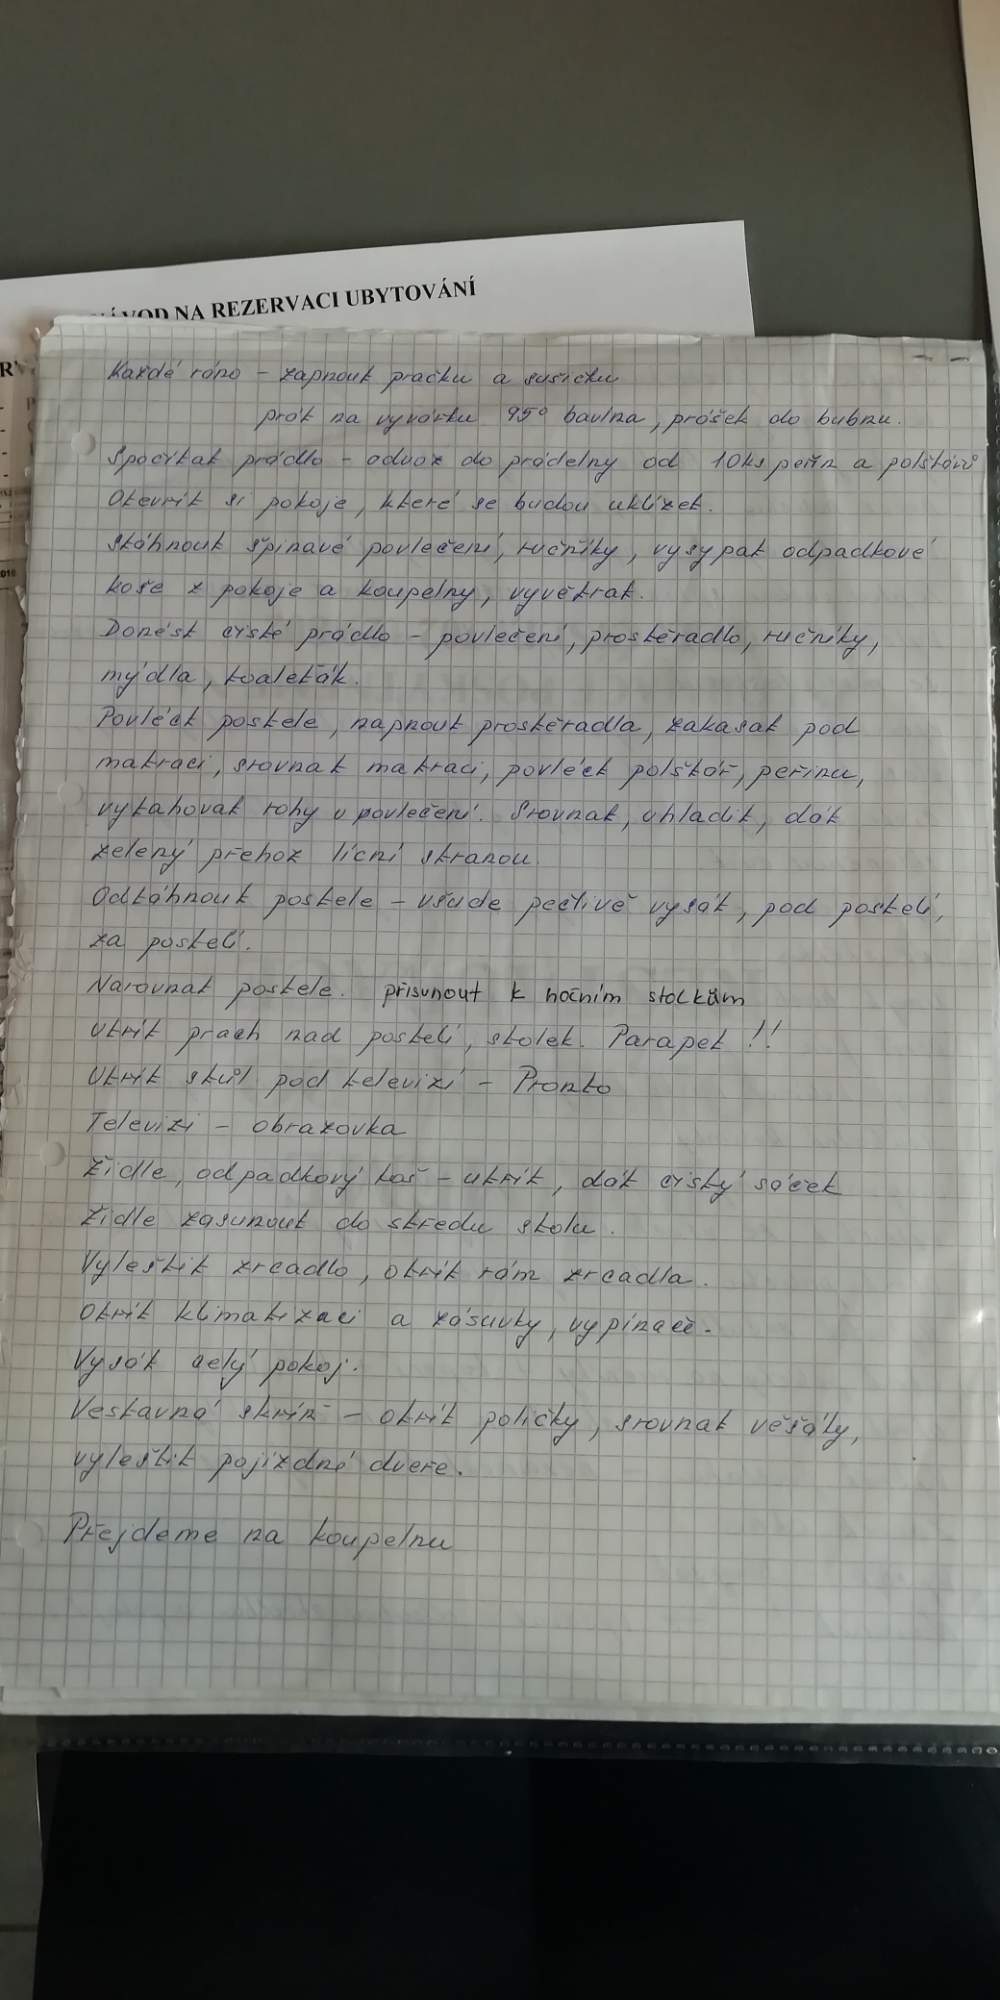 NÁVOD NA REZERVACI UBYTOVÁNÍ
Každé ráno – zapnout pračku a sušičku
prát na vyvářku 95° bavlna, prášek do bubnu.
Spočítat prádlo – odvoz do prádelny od 10ks peřin a polštářů
Otevřít si pokoje, které se budou uklízet.
Stáhnout špinavé povlečení, ručníky, vysypat odpadkové
koše z pokoje a koupelny, vyvětrat.
Donést čisté prádlo – povlečení, prostěradlo, ručníky,
mýdla, toaleťák.
Povléct postele, napnout prostěradla, zakasat pod
matraci, srovnat matraci, povléct polštář, peřinu,
vytahovat rohy u povlečení. Srovnat, uhladit, dát
zelený přehoz lícní stranou.
Odtáhnout postele – všude pečlivě vysát, pod postelí,
za postelí.
Narovnat postele. přisunout k nočním stolkům
Utřít prach nad postelí, stolek. Parapet !!
Utřít stůl pod televizí – Pronto
Televizi – obrazovka
Židle, odpadkový koš – utřít, dát čistý sáček
Židle zasunout do středu stolu.
Vyleštit zrcadlo, otřít rám zrcadla.
Otřít klimatizaci a zásuvky, vypínače.
Vysát celý pokoj.
Vestavná skříň – otřít poličky, srovnat věšáky,
vyleštit pojízdné dveře.
Přejdeme na koupelnu